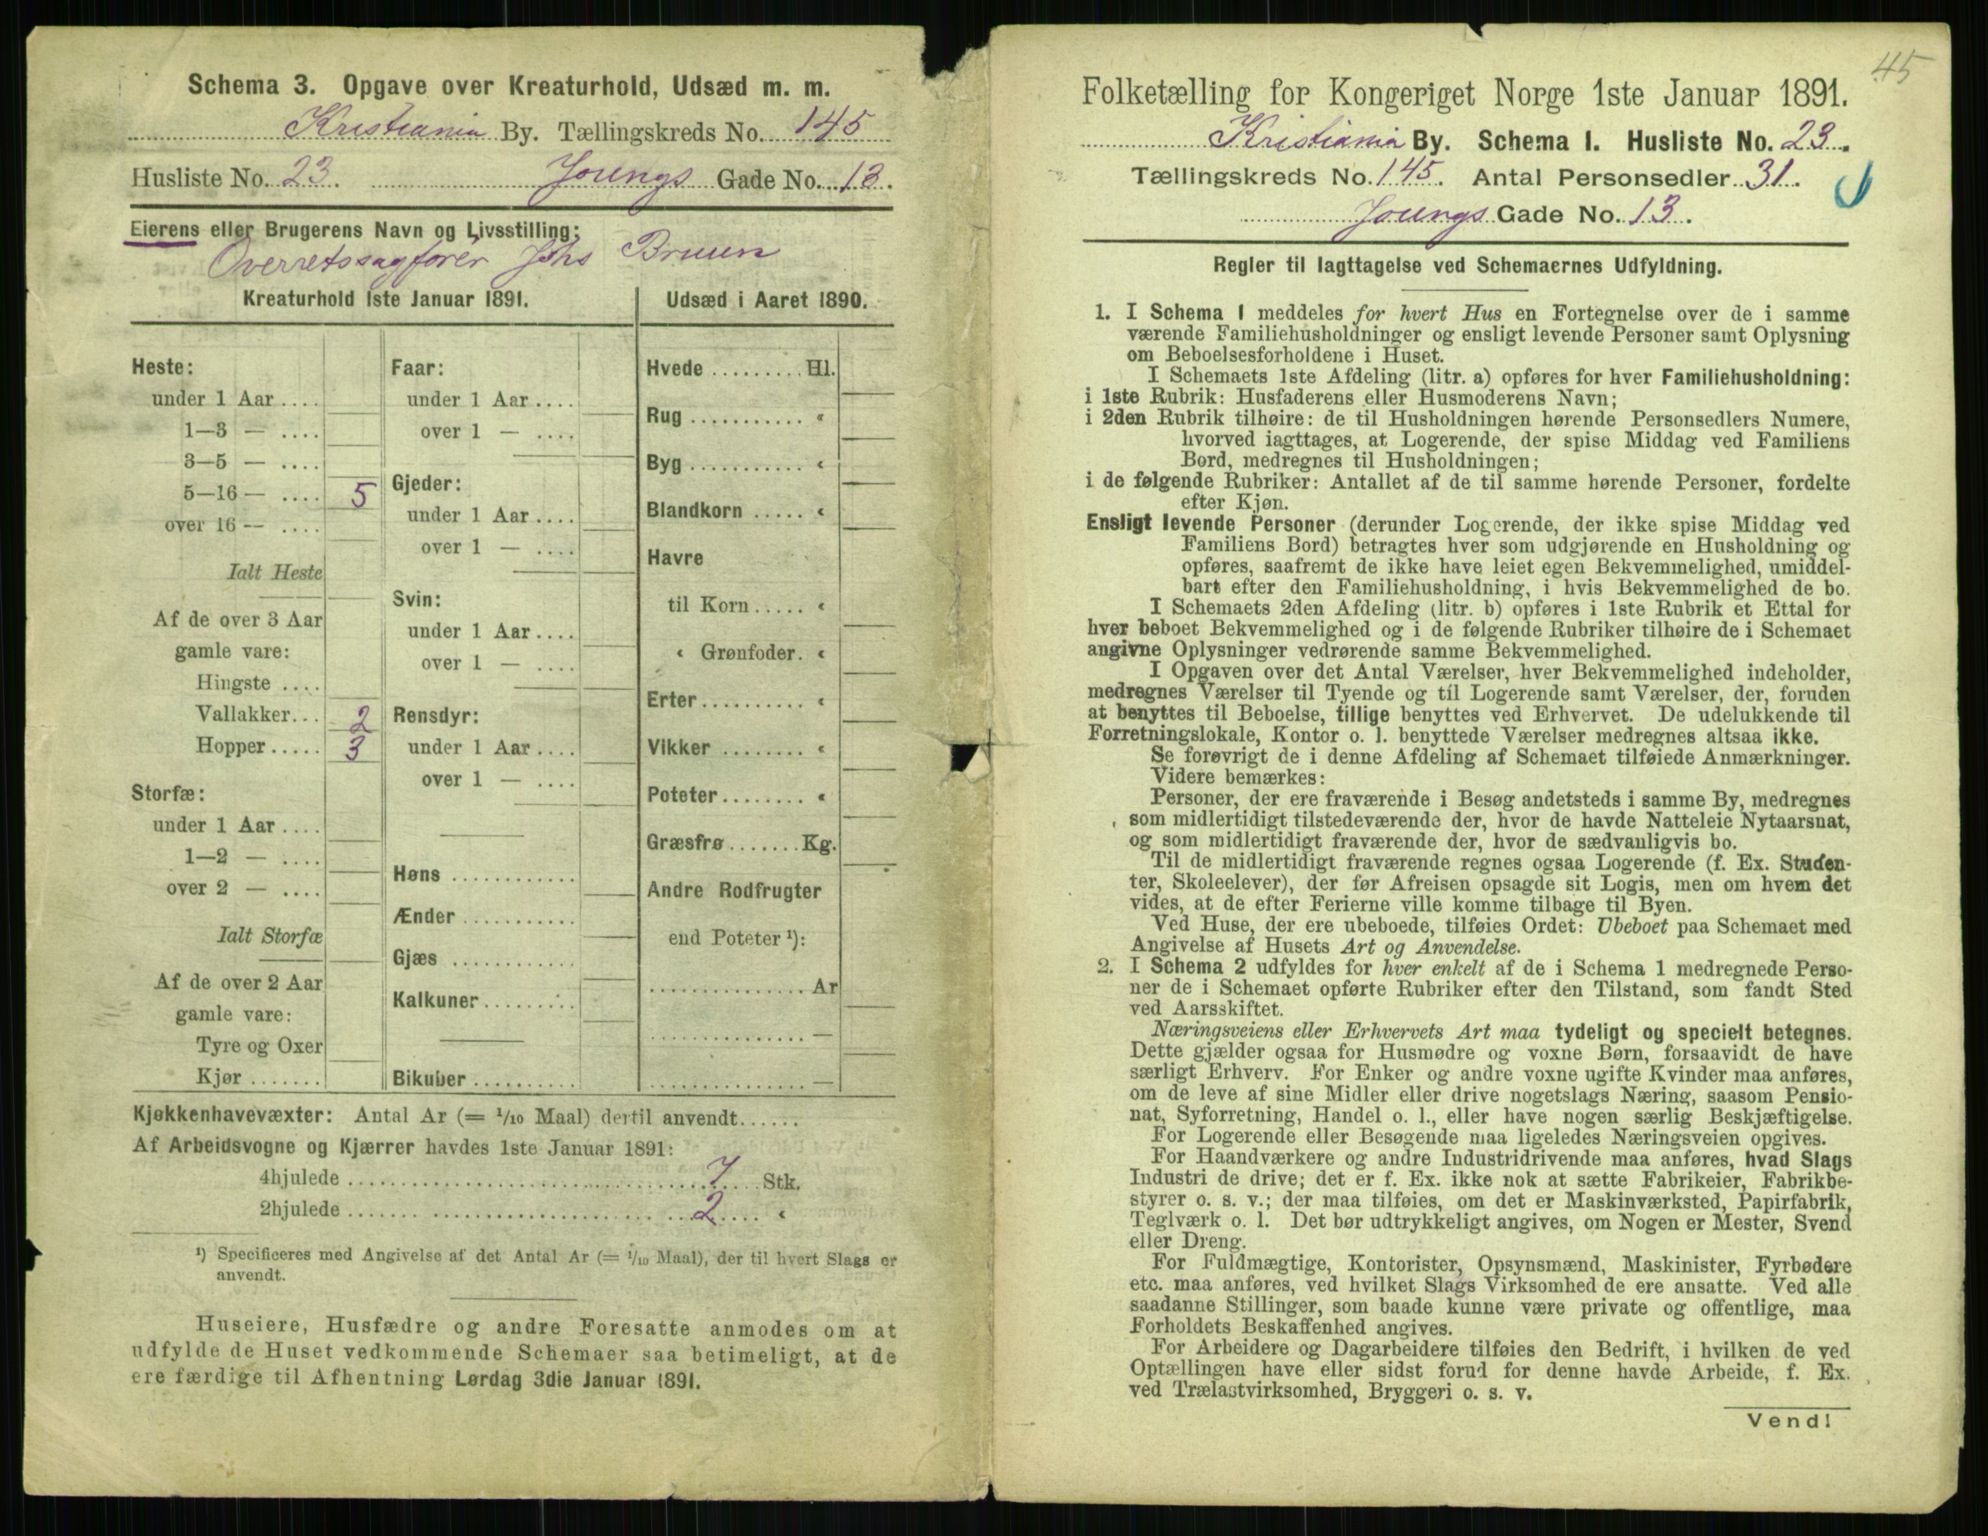 Schema 3. Opgave over Kreaturhold, Udsæd m. m.
Kristiania By. Tællingskreds No. 145
Husliste No. 23. Youngs Gade No. 13.
Eierens eller Brugerens Navn og Livsstilling:
Overretssagfører Johs Bruun
Kreaturhold 1ste Januar 1891.
Heste:
under 1 Aar ....
1—3 — ....
3—5 — ....
5—16 — .... 5
over 16 — ....
Ialt Heste
Af de over 3 Aar
gamle vare:
Hingste ....
Vallakker... 2
Hopper ..... 3
Storfæ:
under 1 Aar ....
1—2 — ....
over 2 — ....
Ialt Storfæ
Af de over 2 Aar
gamle vare:
Tyre og Oxer
Kjør .......
Faar:
under 1 Aar ....
over 1 — ....
Gjeder:
under 1 Aar ....
over 1 — ....
Svin:
under 1 Aar ....
over 1 — ....
Rensdyr:
under 1 Aar ....
over 1 — ....
Høns ............
Ænder ...........
Gjæs ............
Kalkuner .........
Bikuber ..........
Udsæd i Aaret 1890.
Hvede ......... Hl.
Rug ........... «
Byg ........... «
Blandkorn ..... «
Havre
til Korn ..... «
« Grønfoder. «
Erter .......... «
Vikker ........ «
Poteter ........ «
Græsfrø ....... Kg.
Andre Rodfrugter
end Poteter ¹):
............... Ar
............... —
............... —
Kjøkkenhavevæxter: Antal Ar (= 1/10 Maal) dertil anvendt ......
Af Arbeidsvogne og Kjærrer havdes 1ste Januar 1891:
4hjulede ........ 7 Stk.
2hjulede ........ 2 «
¹) Specificeres med Angivelse af det Antal Ar (= 1/10 Maal), der til hvert Slags er
anvendt.
Huseiere, Husfædre og andre Foresatte anmodes om at
udfylde de Huset vedkommende Schemaer saa betimeligt, at de
ere færdige til Afhentning Lørdag 3die Januar 1891.
45
Folketælling for Kongeriget Norge 1ste Januar 1891.
Kristiania By. Schema 1. Husliste No. 23.
Tællingskreds No. 145. Antal Personsedler 31.
Youngs Gade No. 13.
Regler til Iagttagelse ved Schemaernes Udfyldning.
1. I Schema 1 meddeles for hvert Hus en Fortegnelse over de i samme
værende Familiehusholdninger og ensligt levende Personer samt Oplysning
om Beboelsesforholdene i Huset.
I Schemaets 1ste Afdeling (litr. a) opføres for hver Familiehusholdning:
i 1ste Rubrik: Husfaderens eller Husmoderens Navn;
i 2den Rubrik tilhøire: de til Husholdningen hørende Personsedlers Numere,
hvorved iagttages, at Logerende, der spise Middag ved Familiens
Bord, medregnes til Husholdningen;
i de følgende Rubriker: Antallet af de til samme hørende Personer, fordelte
efter Kjøn.
Ensligt levende Personer (derunder Logerende, der ikke spise Middag ved
Familiens Bord) betragtes hver som udgjørende en Husholdning og
opføres, saafremt de ikke have leiet egen Bekvemmelighed, umiddel-
bart efter den Familiehusholdning, i hvis Bekvemmelighed de bo.
I Schemaets 2den Afdeling (litr. b) opføres i 1ste Rubrik et Ettal for
hver beboet Bekvemmelighed og i de følgende Rubriker tilhøire de i Schemaet
angivne Oplysninger vedrørende samme Bekvemmelighed.
I Opgaven over det Antal Værelser, hver Bekvemmelighed indeholder,
medregnes Værelser til Tyende og til Logerende samt Værelser, der, foruden
at benyttes til Beboelse, tillige benyttes ved Erhvervet. De udelukkende til
Forretningslokale, Kontor o. l. benyttede Værelser medregnes altsaa ikke.
Se forøvrigt de i denne Afdeling af Schemaet tilføiede Anmærkninger.
Videre bemærkes:
Personer, der ere fraværende i Besøg andetsteds i samme By, medregnes
som midlertidigt tilstedeværende der, hvor de havde Natteleie Nytaarsnat,
og som midlertidigt fraværende der, hvor de sædvanligvis bo.
Til de midlertidigt fraværende regnes ogsaa Logerende (f. Ex. Studen-
ter, Skoleelever), der før Afreisen opsagde sit Logis, men om hvem det
vides, at de efter Ferierne ville komme tilbage til Byen.
Ved Huse, der ere ubeboede, tilføies Ordet: Ubeboet paa Schemaet med
Angivelse af Husets Art og Anvendelse.
2. I Schema 2 udfyldes for hver enkelt af de i Schema 1 medregnede Perso-
ner de i Schemaet opførte Rubriker efter den Tilstand, som fandt Sted
ved Aarsskiftet.
Næringsveiens eller Erhvervets Art maa tydeligt og specielt betegnes.
Dette gjælder ogsaa for Husmødre og voxne Børn, forsaavidt de have
særligt Erhverv. For Enker og andre voxne ugifte Kvinder maa anføres,
om de leve af sine Midler eller drive nogetslags Næring, saasom Pensio-
nat, Syforretning, Handel o. l., eller have nogen særlig Beskjæftigelse.
For Logerende eller Besøgende maa ligeledes Næringsveien opgives.
For Haandværkere og andre Industridrivende maa anføres, hvad Slags
Industri de drive; det er f. Ex. ikke nok at sætte Fabrikeier, Fabrikbe-
styrer o. s. v.; der maa tilføies, om det er Maskinværksted, Papirfabrik,
Teglværk o. l. Det bør udtrykkeligt angives, om Nogen er Mester, Svend
eller Dreng.
For Fuldmægtige, Kontorister, Opsynsmænd, Maskinister, Fyrbødere
etc. maa anføres, ved hvilket Slags Virksomhed de ere ansatte. Ved alle
saadanne Stillinger, som baade kunne være private og offentlige, maa
Forholdets Beskaffenhed angives.
For Arbeidere og Dagarbeidere tilføies den Bedrift, i hvilken de ved
Optællingen have eller sidst forud for denne havde Arbeide, f. Ex.
ved Trælastvirksomhed, Bryggeri o. s. v.
Vend!